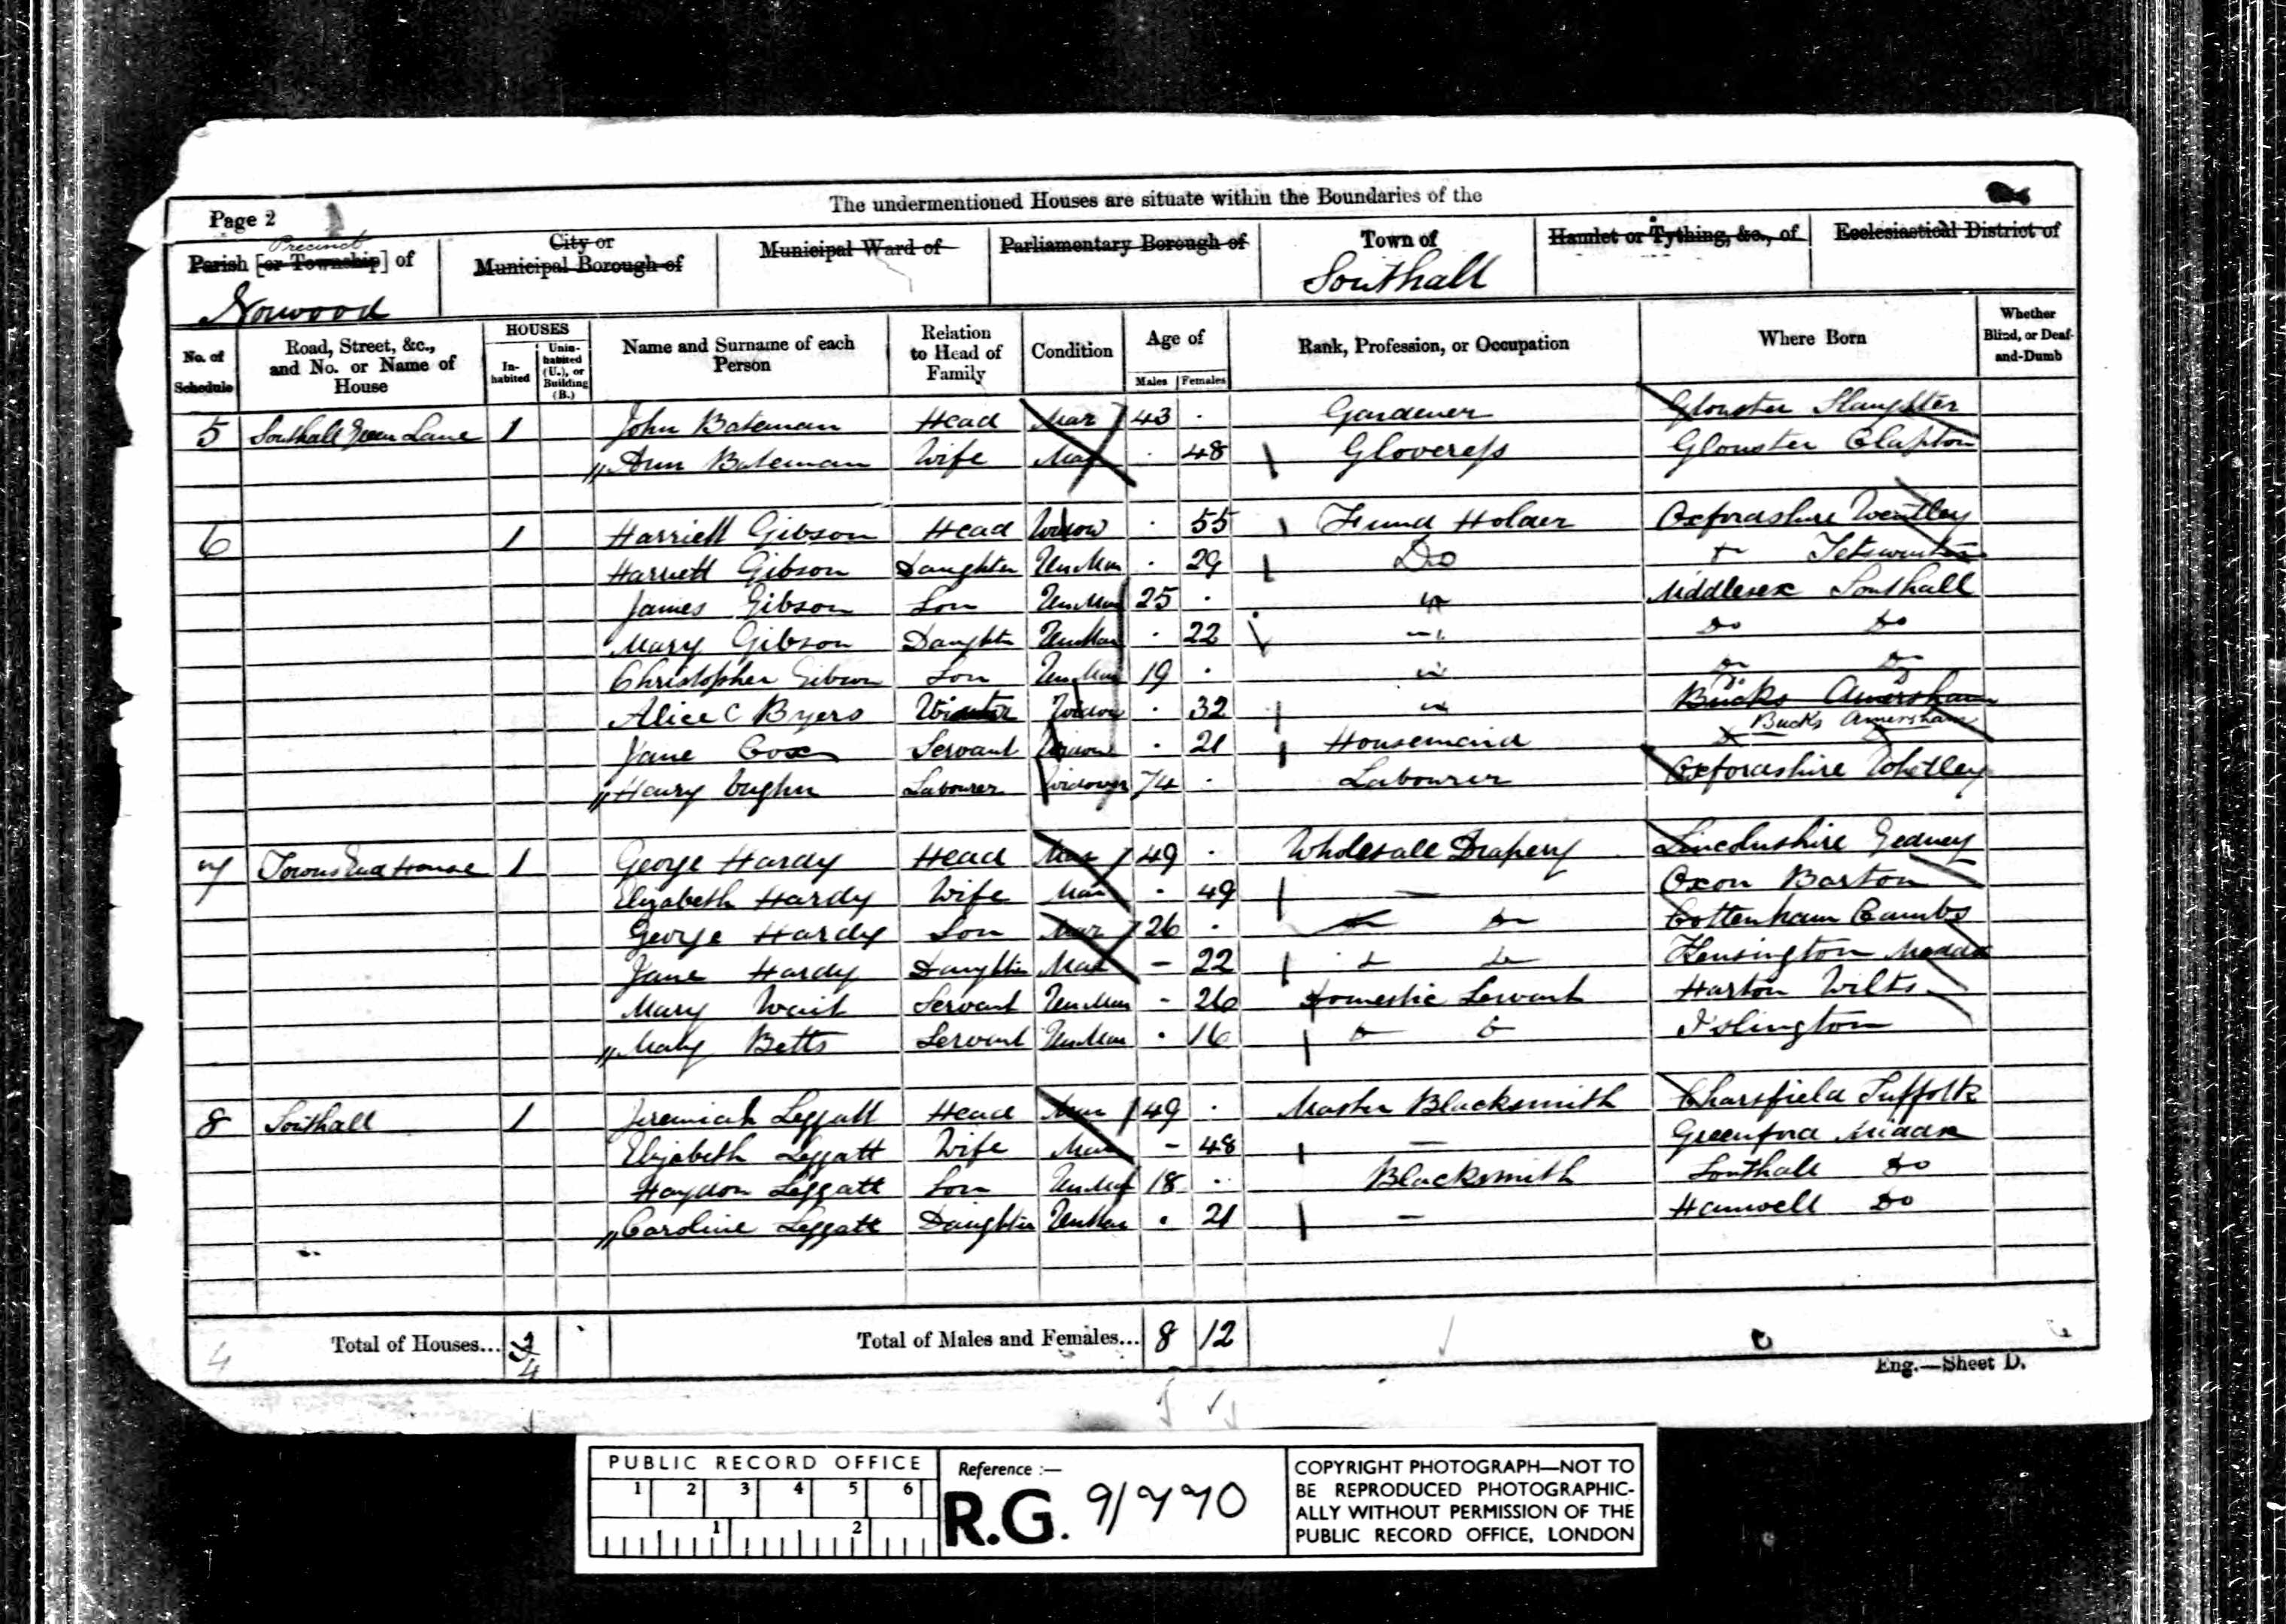 The undermentioned Houses are situate within the Boundaries of the
Page 2
Precinct
Parish [or Township] of
Norwood
City or
Municipal Borough of
Municipal Ward of
Parliamentary Borough of
Town of
Southall
Hamlet or Tything, &c., of
Ecclesiastical District of
No. of Schedule
Road, Street, &c., and No. or Name of House
HOUSES
Inhabited
Uninhabited (U.), or Building (B.)
Name and Surname of each Person
Relation to Head of Family
Condition
Age of
Males Females
Rank, Profession, or Occupation
Where Born
Whether Blind, or Deaf-and-Dumb
5 Southall Green Lane 1 John Bateman Head Mar 43 Gardener Glouster Slaughter
Ann Bateman Wife Mar 48 Gloveress Glouster Clapton
6 1 Harriett Gibson Head Widow 55 Fund Holder Oxfordshire
Harriett Gibson Daughter UnMar 29 Do
James Gibson Son UnMar 25 Middlesex Southall
Mary Gibson Daughtr UnMar 22 Do Do
Christopher Gibson Son UnMar 19 Do Do
Alice C Byers Visitor Widow 32 Bucks Amersham
Bucks Amersham
Jane Cox Servant 21 Housemaid
Henry Labourer Widower 74 Labourer Oxfordshire
7 Towns End House 1 George Hardy Head Mar 49 Wholesale Drapery Lincolnshire Gedney
Elizabeth Hardy Wife Mar 49 — Oxon Barton
George Hardy Son Mar 26 Do Cottenham Cambs
Jane Hardy Daughter Mar – 22 Do Do Kensington Middx
Mary Wait Servant UnMar – 26 Domestic Servant Wilts
Mary Betts Servant UnMar 16 Do Do Islington
8 Southall 1 Jeremiah Leggatt Head Mar 49 Master Blacksmith Charsfield Suffolk
Elizabeth Leggatt Wife Mar – 48 — Greenford Middx
Haydon Leggatt Son UnMar 18 Blacksmith Southall Do
Caroline Leggatt Daughter UnMar 21 – Hanwell Do
4 Total of Houses... 4 Total of Males and Females... 8 12
Eng.—Sheet D.
PUBLIC RECORD OFFICE
1 2 3 4 5 6
1 2
Reference :—
R.G. 9/770
COPYRIGHT PHOTOGRAPH—NOT TO
BE REPRODUCED PHOTOGRAPHIC-
ALLY WITHOUT PERMISSION OF THE
PUBLIC RECORD OFFICE, LONDON